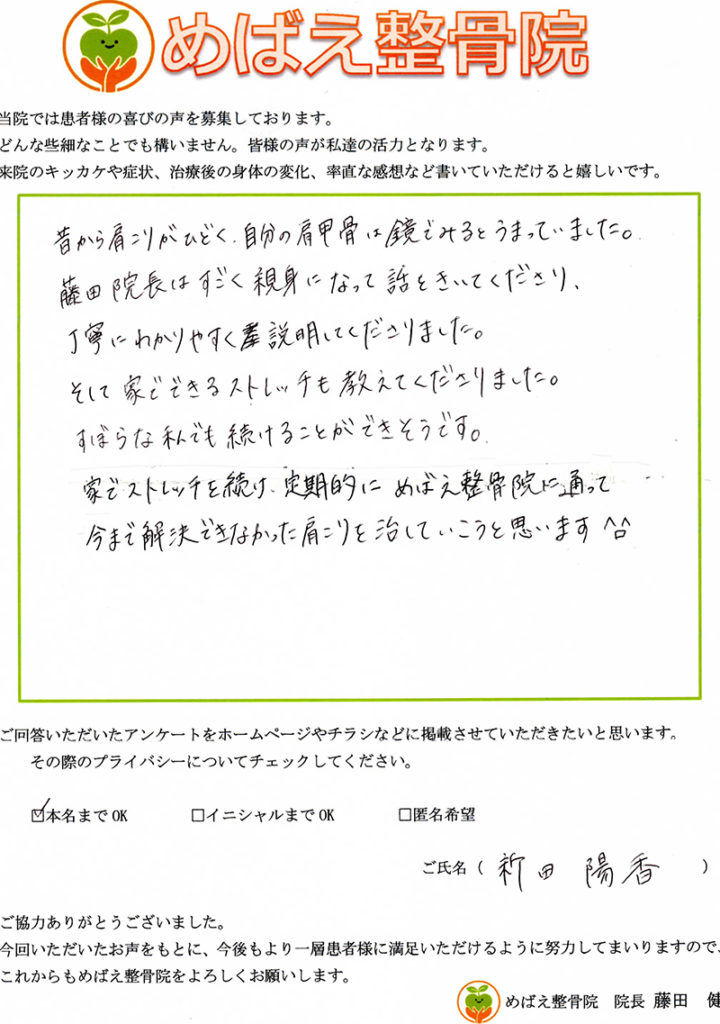 めばえ整骨院
当院では患者様の喜びの声を募集しております。
どんな些細なことでも構いません。皆様の声が私達の活力となります。
来院のキッカケや症状、治療後の身体の変化、率直な感想など書いていただけると嬉しいです。
昔から肩こりがひどく、自分の肩甲骨は鏡でみるとうまっていました。
藤田院長はすごく親身になって話をきいてくださり、
丁寧にわかりやすく説明してくださりました。
そして家でできるストレッチも教えてくださりました。
ずぼらな私でも続けることができそうです。
家でストレッチを続け、定期的にめばえ整骨院に通って
今まで解決できなかった肩こりを治していこうと思います^ロ^
ご回答いただいたアンケートをホームページやチラシなどに掲載させていただきたいと思います。
その際のプライバシーについてチェックしてください。
☑本名までOK □イニシャルまでOK □匿名希望
ご氏名（ 新田 陽香 ）
ご協力ありがとうございました。
今回いただいたお声をもとに、今後もより一層患者様に満足いただけるように努力してまいりますので、
これからもめばえ整骨院をよろしくお願いします。
めばえ整骨院 院長 藤田 健